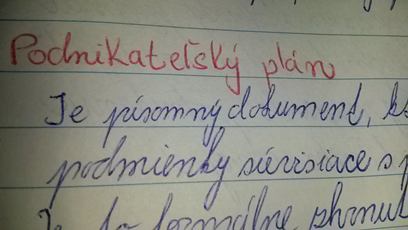 Podnikateľský plán
Je písomný dokument,
podmienky súvisiace s
formálne zhrnut